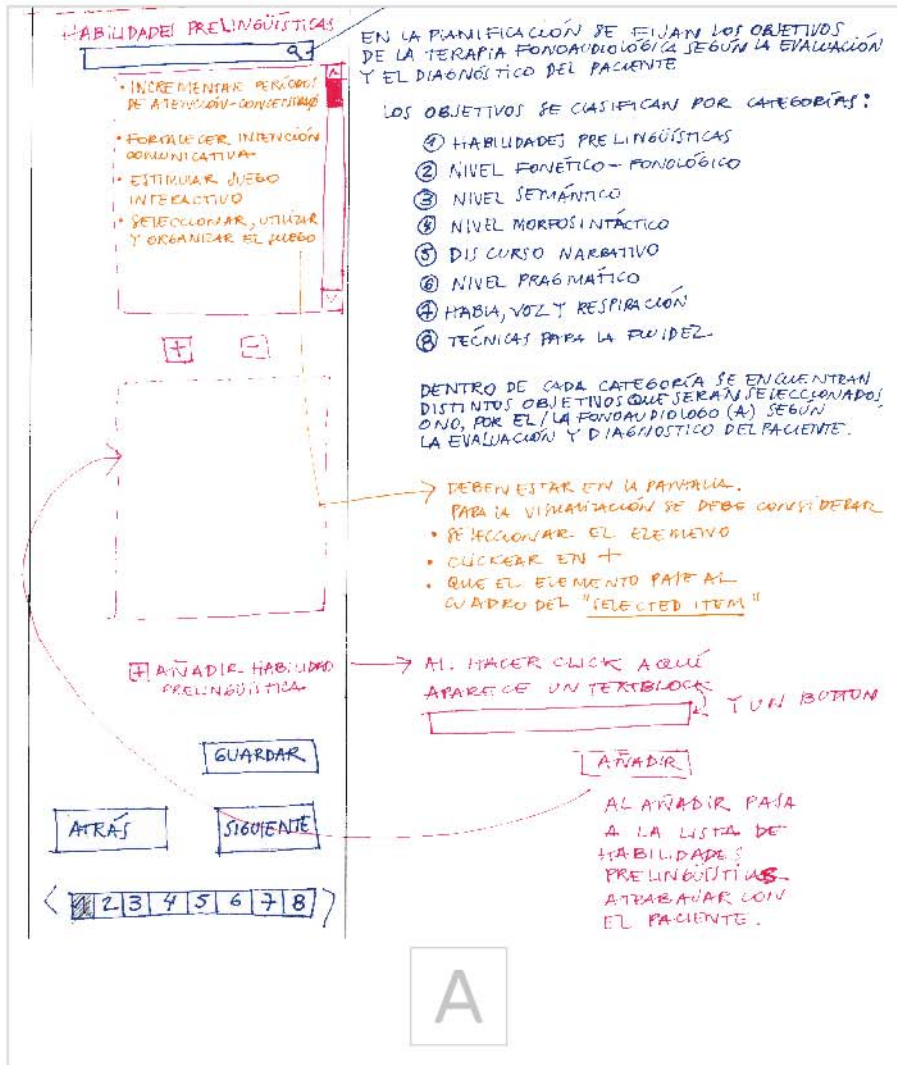 HABILIDADES PRELINGÜÍSTICAS
• INCREMENTAR PERÍODOS
DE ATENCIÓN-CONCENTRACIÓ
• FORTALECER INTENCIÓN
COMUNICATIVA
• ESTIMULAR JUEGO
INTERACTIVO
• SELECCIONAR, UTILIZAR
Y ORGANIZAR EL JUEGO
+ -
+ AÑADIR HABILIDAD
PRELINGÜÍSTICA
GUARDAR
ATRÁS SIGUIENTE
< 1 2 3 4 5 6 7 8 >
EN LA PLANIFICACIÓN SE FIJAN LOS OBJETIVOS
DE LA TERAPIA FONOAUDIOLÓGICA SEGÚN LA EVALUACIÓN
Y EL DIAGNÓSTICO DEL PACIENTE
LOS OBJETIVOS SE CLASIFICAN POR CATEGORÍAS:
1 HABILIDADES PRE LINGÜÍSTICAS
2 NIVEL FONÉTICO - FONOLÓGICO
3 NIVEL SEMÁNTICO
4 NIVEL MORFOSINTÁCTICO
5 DISCURSO NARRATIVO
6 NIVEL PRAGMÁTICO
7 HABLA, VOZ Y RESPIRACIÓN
8 TÉCNICAS PARA LA FLUIDEZ
DENTRO DE CADA CATEGORÍA SE ENCUENTRAN
DISTINTOS OBJETIVOS QUE SERÁN SELECCIONADOS,
O NO, POR EL / LA FONOAUDIOLOGO (A) SEGÚN
LA EVALUACIÓN Y DIAGNOSTICO DEL PACIENTE.
DEBEN ESTAR EN LA PANTALLA.
PARA LA VISUALIZACIÓN SE DEBE CONSIDERAR
• SELECCIONAR EL ELEMENTO
• CLICKEAR EN +
• QUE EL ELEMENTO PASE AL
CUADRO DEL "SELECTED ITEM"
AL HACER CLICK AQUÍ
APARECE UN TEXTBLOCK
Y UN BUTTON
AÑADIR
AL AÑADIR PASA
A LA LISTA DE
HABILIDADES
PRELINGÜÍSTICAS
A TRABAJAR CON
EL PACIENTE.
A